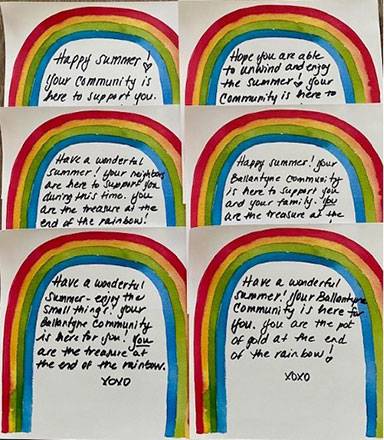 Happy summer!
Your community is
here to support you.
Hope you are able
to unwind and enjoy
the summer! Your
Community is here to
Have a wonderful
summer! Your neighbors
are here to support you
during this time. You
are the treasure at the
end of the rainbow!
Happy summer! Your
Ballantyne Community
is here to support you
and your family. You
are the treasure at the
Have a wonderful
summer - enjoy the
small things! Your
Ballantyne Community
is here for you! You
are the treasure at
the end of the rainbow.
XOXO
Have a wonderful
summer! Your Ballantyne
Community is here for
you. You are the pot
of gold at the end
of the rainbow!
XOXO